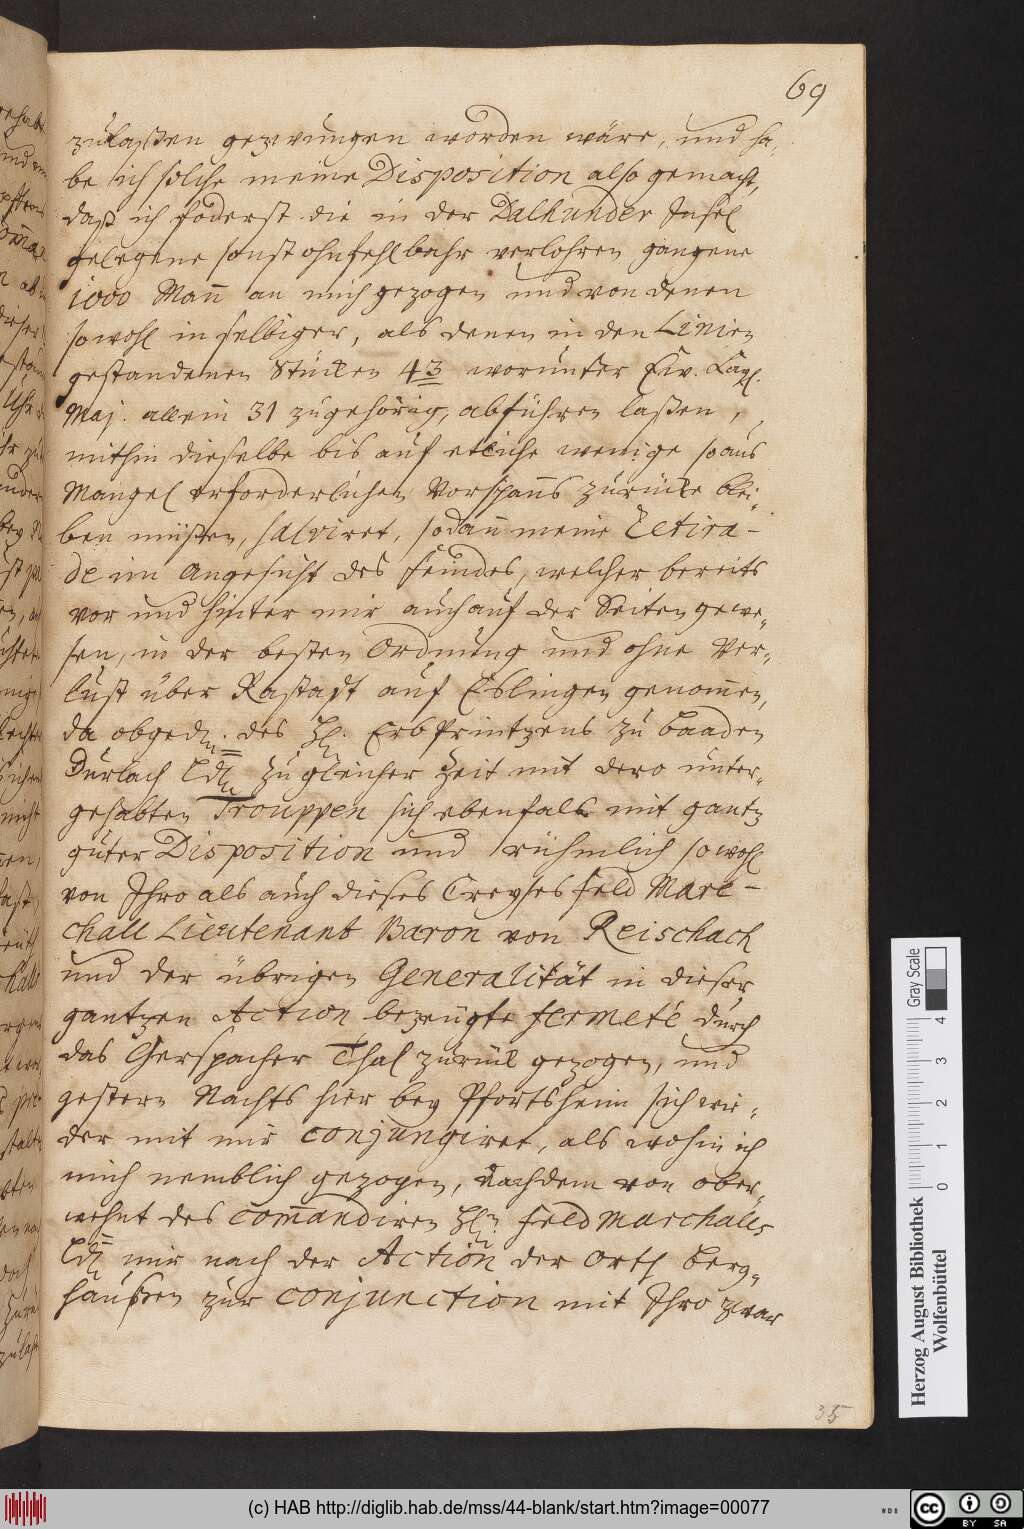 69
zulaßen gezwungen worden wäre, und ha-
be ich solche meine Disposition also gemacht,
daß ich föderst die in der Dalhunder Insel
gelegene sonst ohnfehlbahr verlohren gangene
1000 Mañ an mich gezogen und von denen
sowohl in selbiger, als denen in den Linien
gestandenen Stücken 43 worunter Ew. Kayl.
Maj. allein 31 zugehörig, abführen laßen,
mithin dieselbe bis auf etliche wenige so aus
Mangel erforderlichen Vorspañs zurücke blei-
ben müßen, salviret, sodañ meine Retira-
de im Angesicht des Feindes, welcher bereits
vor und hinter mir auch auf der Seiten gewe-
sen, in der besten Ordnung und ohne Ver-
lust über Rastatt auf Eslingen genom̄en,
da obged. des H. Erb Printzens zu Baaden
Durlach Ld. zu gleicher Zeit mit dero unter-
gehabten Trouppen sich ebenfals mit gantz
guter Disposition und rühmlich sowohl
von Ihro als auch dieses Creyses Feld Mare-
chall Lieutenant Baron von Reischach
und der übrigen Generalität in dieser
gantzen Action bezeugte fermeté durch
das Gerspacher Thal zurück gezogen, und
gestern Nachts hier bey Pfortsheim sich wie-
der mit mir conjungiret, als wohin ich
mich nemblich gezogen, nachdem von ober-
wehnt des com̄andiren H. Feld Marchalls
Ld. mir nach der Action der Orth Berg-
haußen zur conjunction mit Ihro zwar
35
Herzog August Bibliothek
Wolfenbüttel
Gray Scale
0 1 2 3 4
(c) HAB http://diglib.hab.de/mss/44-blank/start.htm?image=00077
WDB
cc BY SA